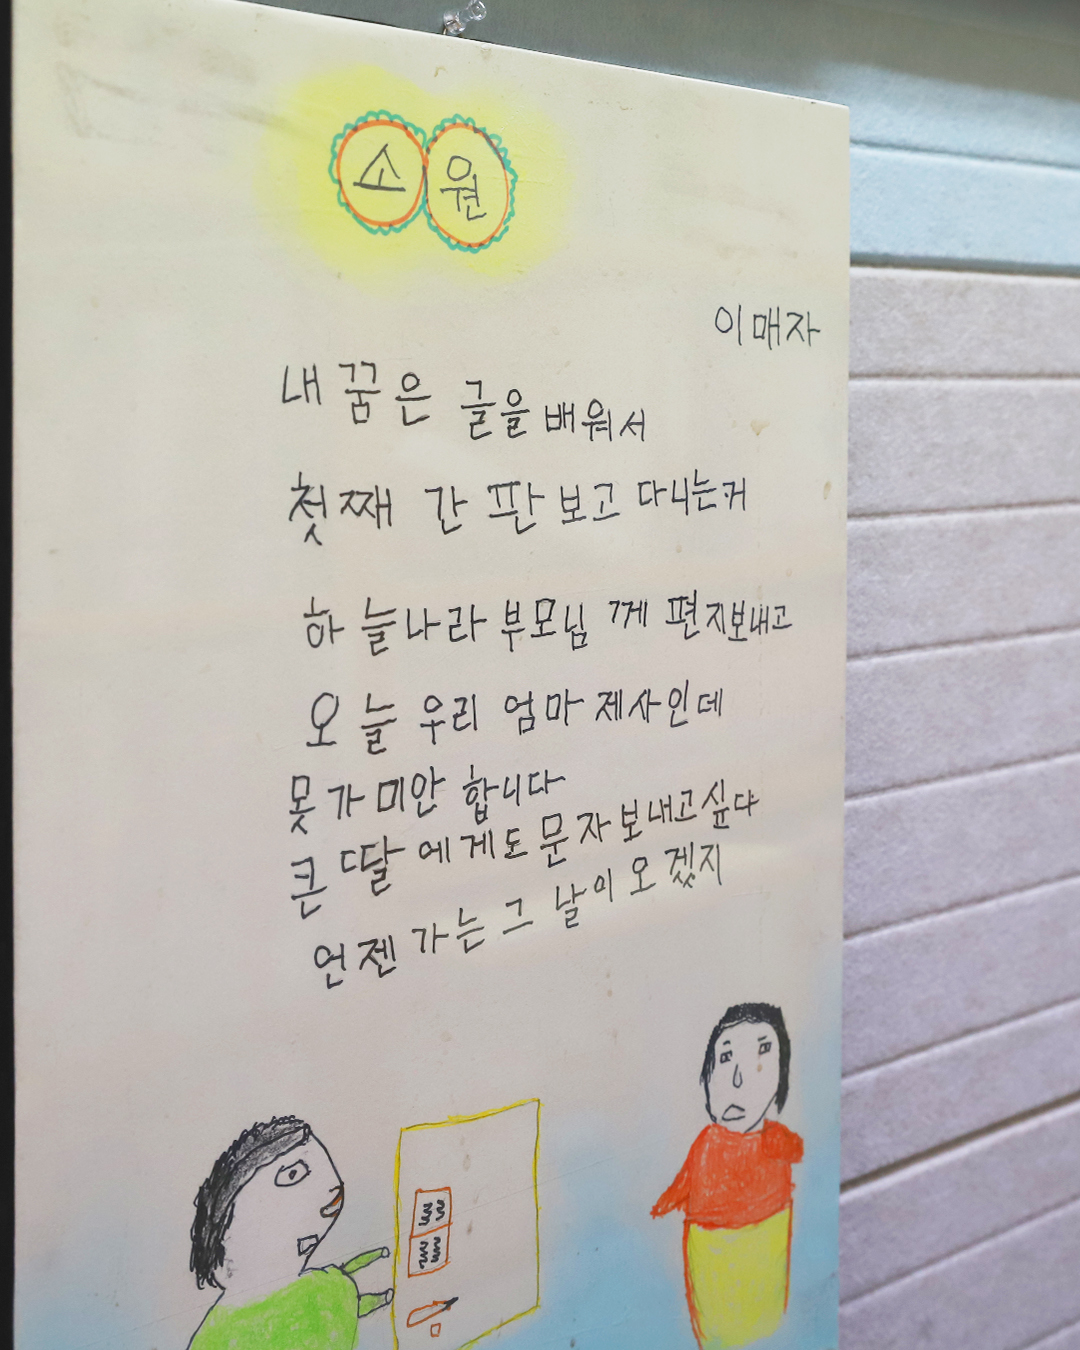 소원
이매자
내 꿈은 글을 배워서
첫째 간판 보고 다니는거
하늘나라 부모님께 편지보내고
오늘 우리 엄마 제사인데
못가 미안 합니다
큰 딸 에게도 문자 보내고싶다
언젠가는 그 날이 오겠지